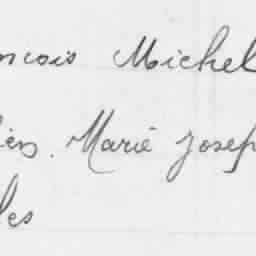 ncois Michel
ien. Marie Josep
les